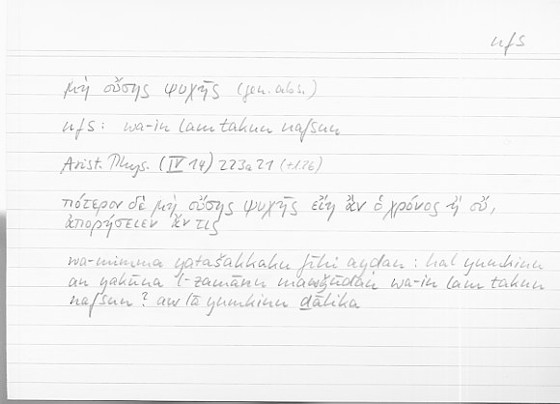 nfs
μὴ οὔσης ψυχῆς (gen. abs.)
nfs: wa-in lam takun nafsun
Arist. Phys. (IV 14) 223a21 (+226)
πότερον δὲ μὴ οὔσης ψυχῆς εἴη ἂν ὁ χρόνος ἢ οὔ,
ἀπορήσειεν ἄν τις
wa-mimma yatašakkaku fīhi ayḍan: hal yumkinu
an yakūna l-zamānu mawǧūdan wa-in lam takun
nafsun? aw lā yumkinu ḏālika